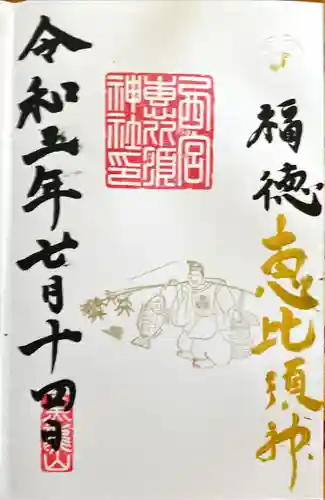 福徳恵比須神
西宮
惠比須
神社印
令和五年七月十四日